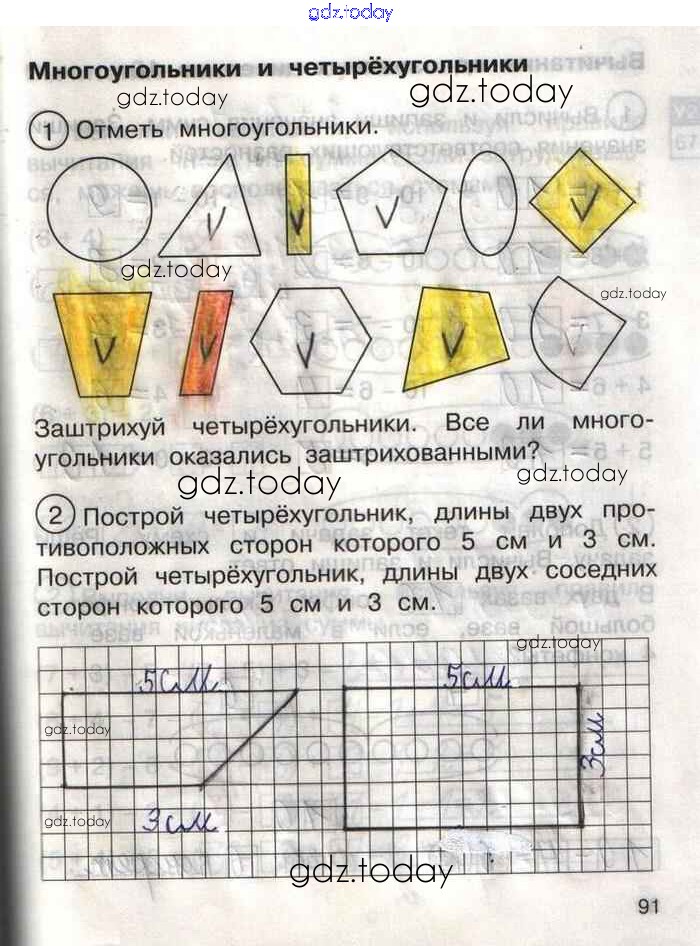 gdz.today
Многоугольники и четырёхугольники
gdz.today gdz.today
1 Отметь многоугольники.
V V V V
gdz.today
gdz.today
V V V V V
Заштрихуй четырёхугольники. Все ли много-
угольники оказались заштрихованными?
gdz.today gdz.today
2 Построй четырёхугольник, длины двух про-
тивоположных сторон которого 5 см и 3 см.
Построй четырёхугольник, длины двух соседних
сторон которого 5 см и 3 см.
gdz.today
5 см 5 см
gdz.today
3 см
gdz.today
3 см
gdz.today
91